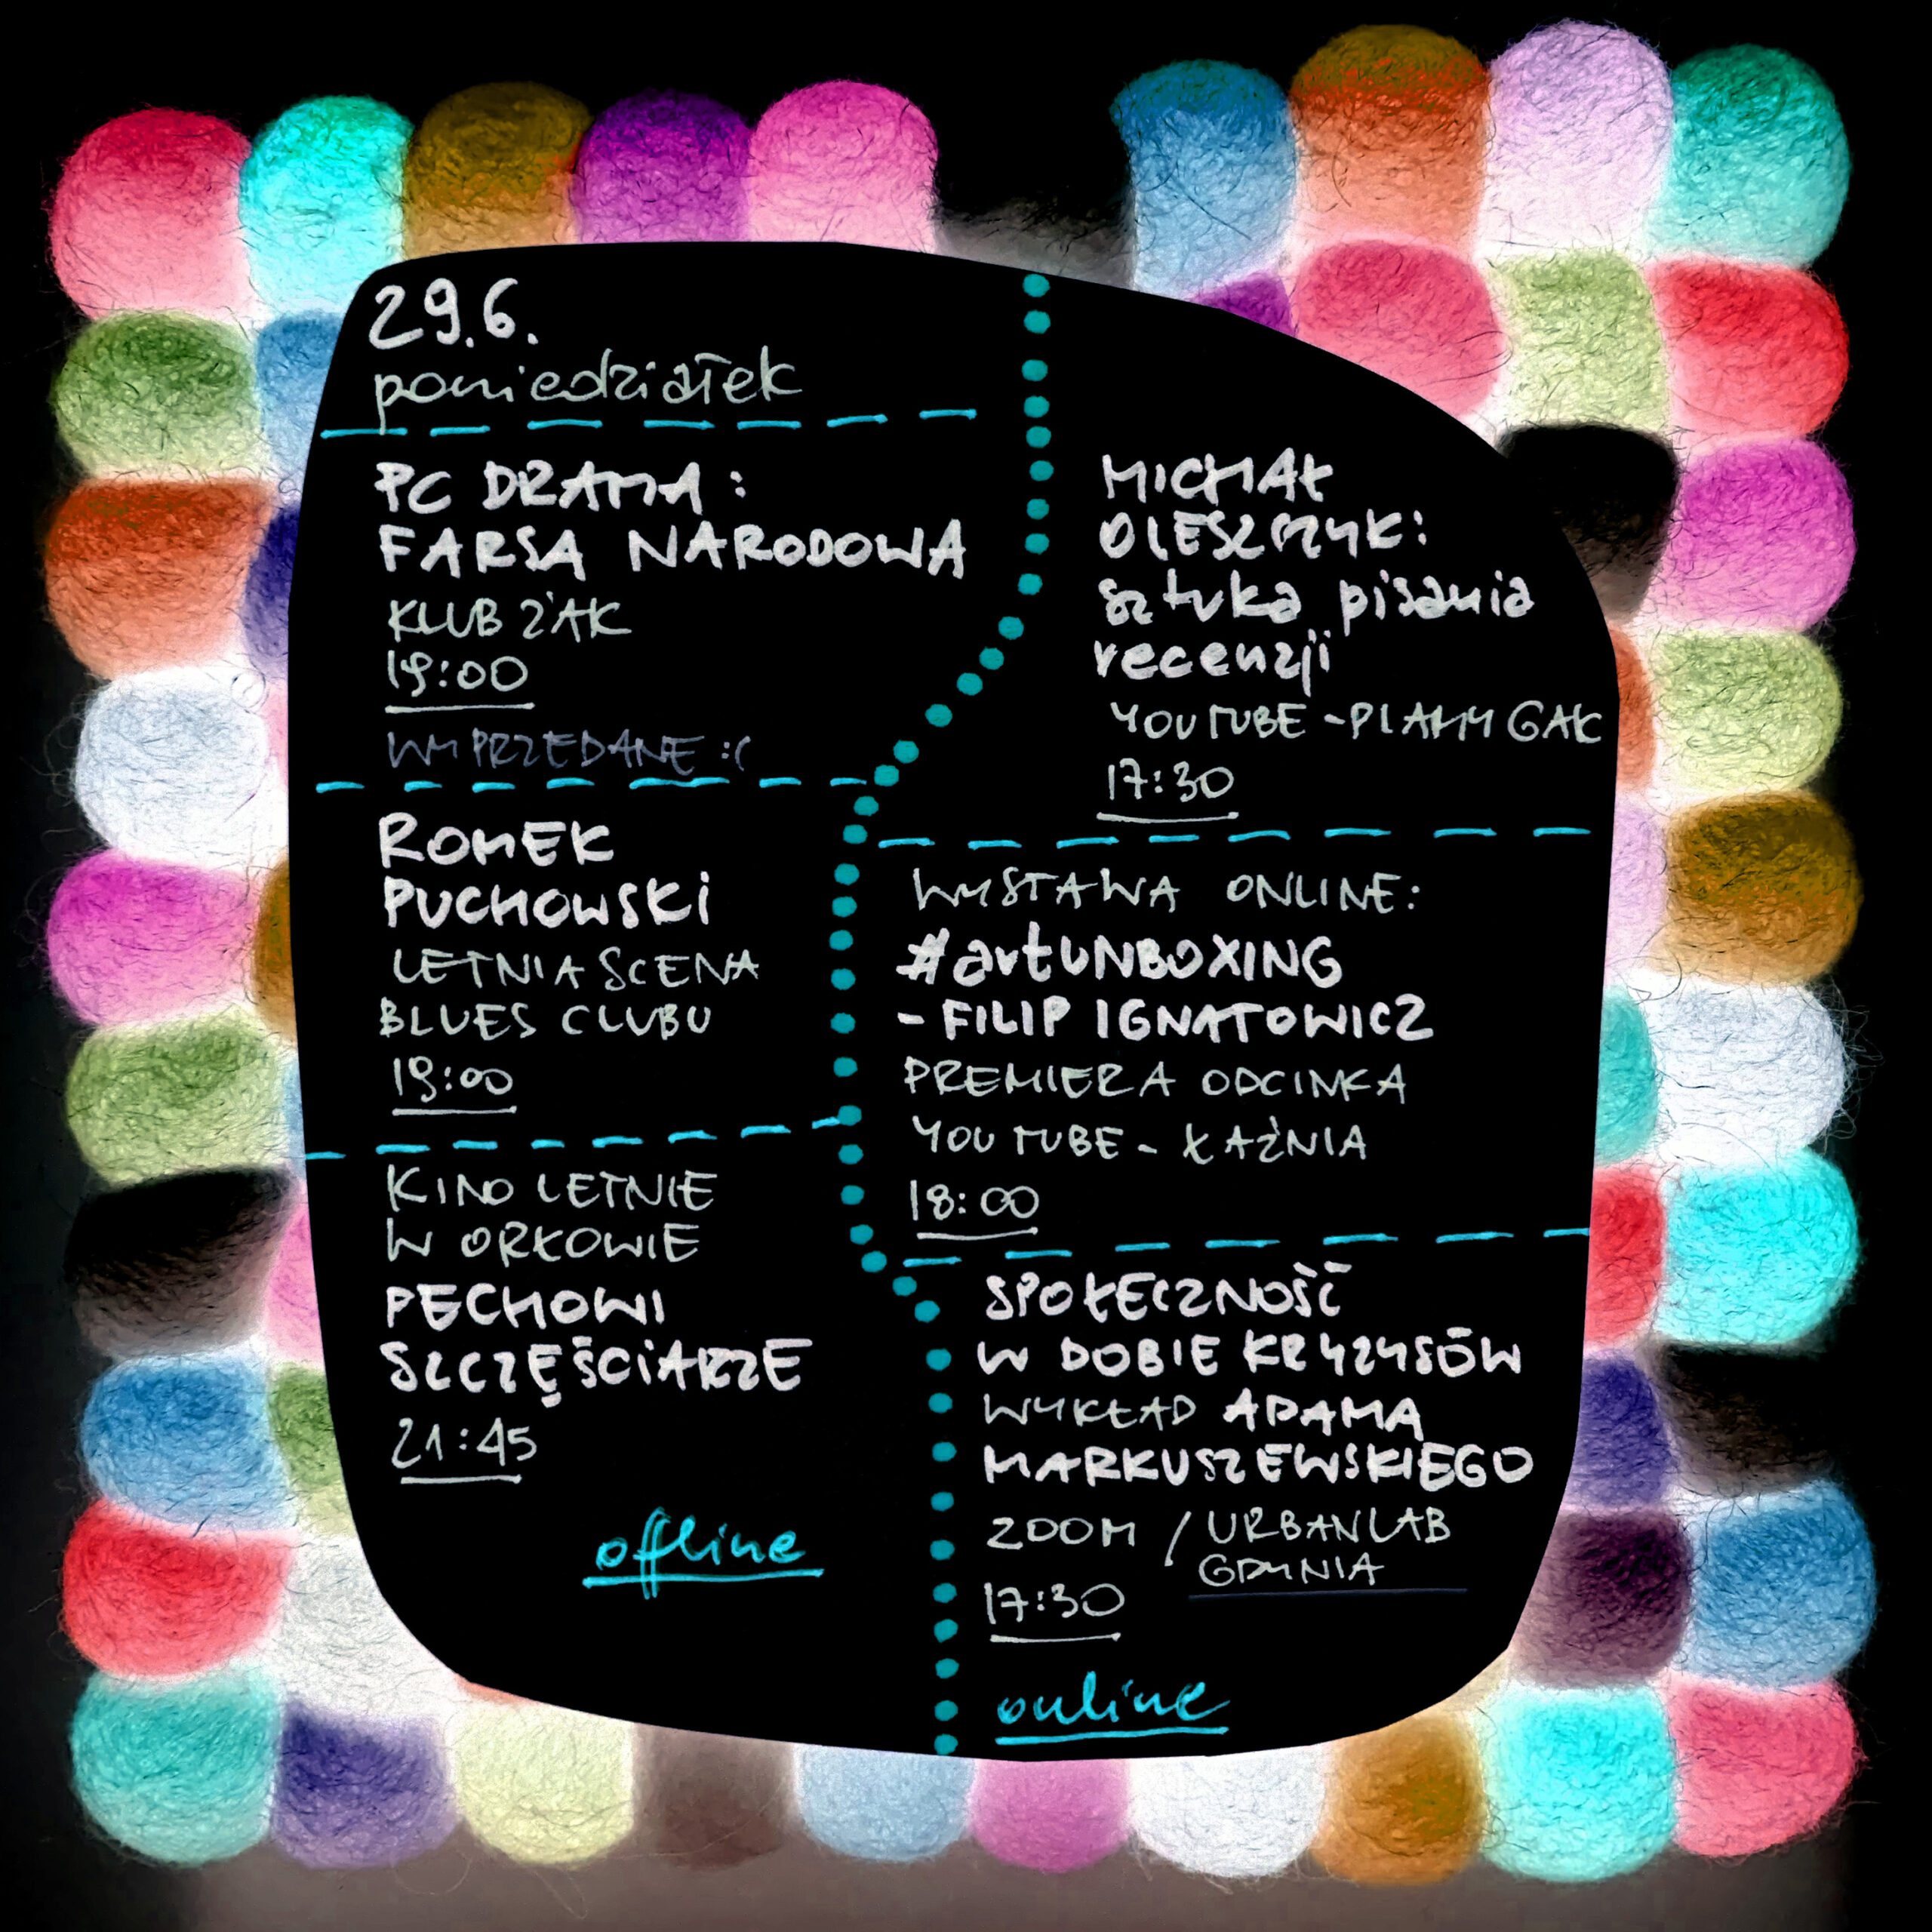 29.6.
poniedziałek
PC DRAMA:
FARSA NARODOWA
KLUB ŻAK
19:00
WYPRZEDANE :(
ROMEK
PUCHOWSKI
LETNIA SCENA
BLUES CLUBU
19:00
KINO LETNIE
W ORŁOWIE
PECHOWI
SZCZĘŚCIARZE
21:45
offline
MICHAŁ
OLESZCZYK:
sztuka pisania
recenzji
YOUTUBE - PLAMY GAK
17:30
WYSTAWA ONLINE:
#artUNBOXING
- FILIP IGNATOWICZ
PREMIERA ODCINKA
YOUTUBE - ŁAŹNIA
18:00
SPOŁECZNOŚĆ
W DOBIE KRYZYSÓW
WYKŁAD ADAMA
MARKUSZEWSKIEGO
ZOOM / URBANLAB
GDYNIA
17:30
online